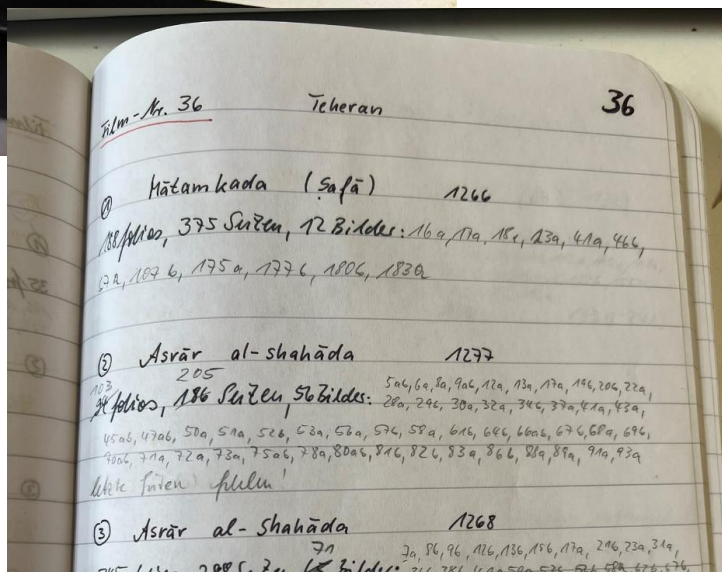 Film-Nr. 36 Teheran 36
① Mātamkada (Ṣafā) 1266
188 folios, 375 Seiten, 12 Bilder: 16a, 17a, 18a, 23a, 41a, 46b,
67a, 107b, 175a, 177b, 180b, 183a
② Asrār al-shahāda 1277
103 205
94 folios, 186 Seiten, 56 Bilder: 5ab, 6a, 8a, 9ab, 12a, 13a, 17a, 19b, 20b, 22a,
28a, 29b, 30a, 32a, 34b, 37a, 41a, 43a,
45ab, 47ab, 50a, 51a, 52b, 53a, 56a, 57b, 58a, 61b, 64b, 66ab, 67b, 68a, 69b,
70ab, 71a, 72a, 73a, 75ab, 78a, 80ab, 81b, 82b, 83a, 86b, 88a, 89a, 91a, 93a
letzte Seiten fehlen!
③ Asrār al-Shahāda 1268
71 7a, 8b, 9b, 12b, 13b, 15b, 17a, 21b, 23a, 31a,
Bilder: